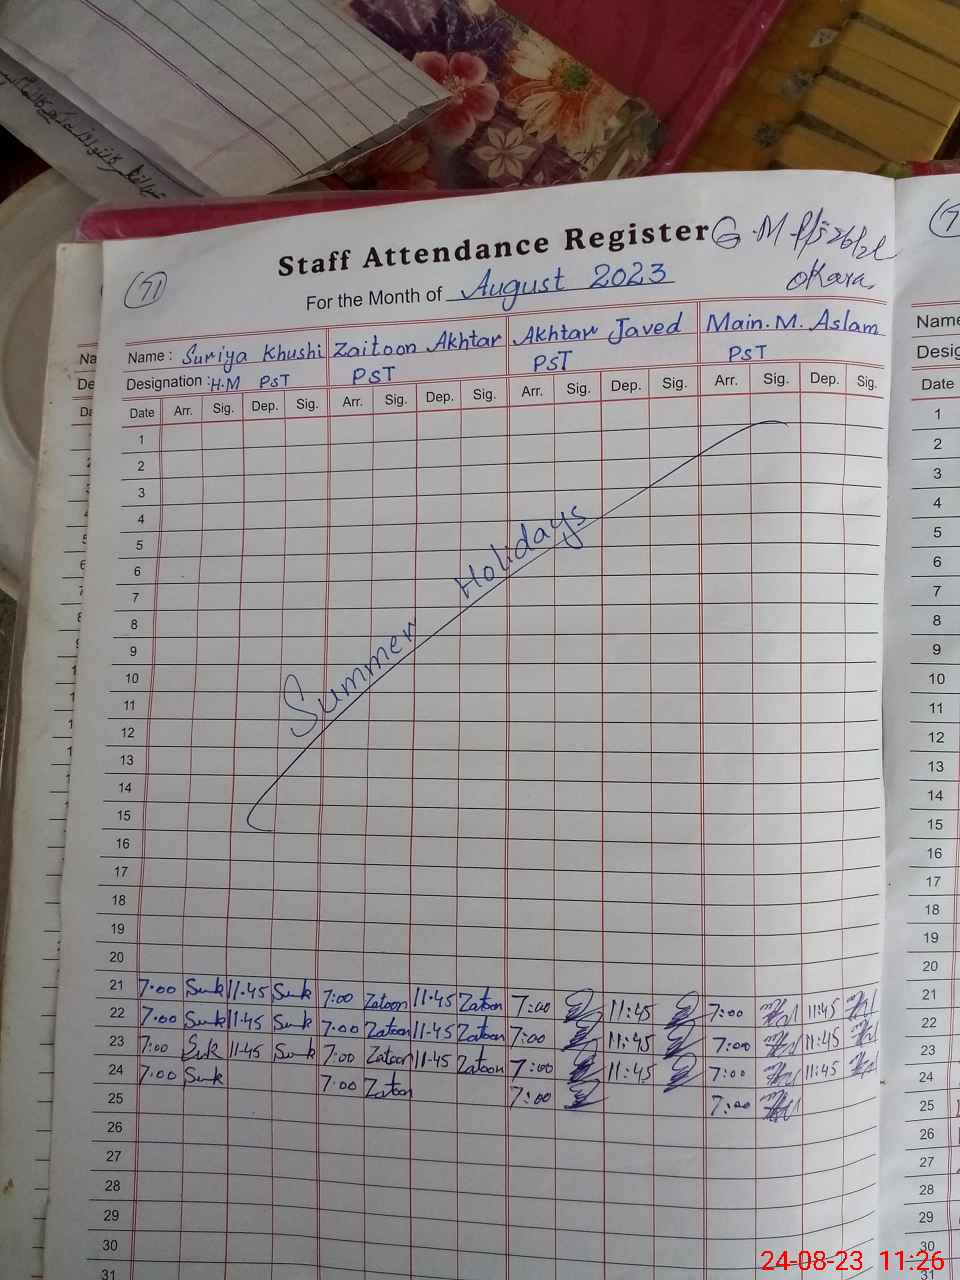 Staff Attendance Register
G.M
Okara
71
For the Month of August 2023
Name : Suriya Khushi Zaitoon Akhtar Akhtar Javed Main. M. Aslam
Designation : H.M PST PST PST PST
Date Arr. Sig. Dep. Sig. Arr. Sig. Dep. Sig. Arr. Sig. Dep. Sig. Arr. Sig. Dep. Sig.
1
2
3
4
5
6
7
8
9
10
11
12
13
14
15
Summer Holidays
16
17
18
19
20
21 7.00 Suk 11.45 Suk 7:00 Zatoon 11.45 Zatoon 7:00 11:45 7:00 11:45
22 7.00 Suk 11.45 Suk 7.00 Zatoon 11.45 Zatoon 7:00 11:45 7:00 11:45
23 7:00 Suk 11.45 Suk 7:00 Zatoon 11.45 Zatoon 7:00 11:45 7:00 11:45
24 7.00 Suk 7.00 Zatoon 7:00 7:00
25
26
27
28
29
30
31
Name
Desig
Date
1
2
3
4
5
6
7
8
9
10
11
12
13
14
15
16
17
18
19
20
21
22
23
24
25
26
27
28
29
30
31
24-08-23 11:26